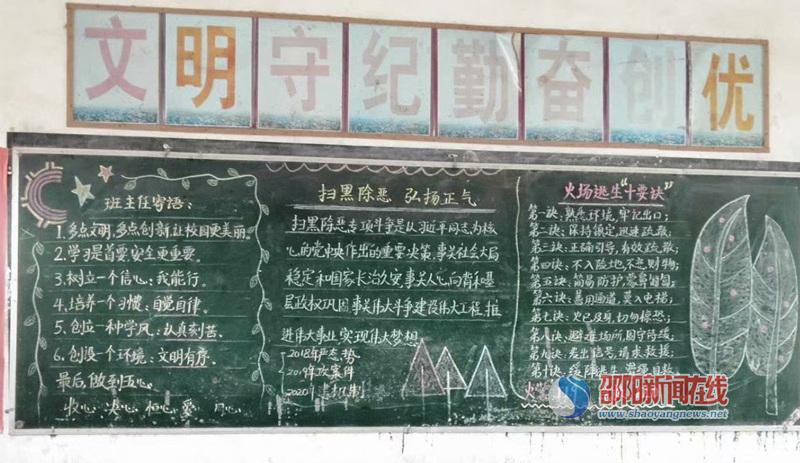 文明守纪勤奋创优
班主任寄语:
1.多点文明,多点创新,让校园更美丽。
2.学习是首要,安全更重要。
3.树立一个信心:我能行。
4.培养一个习惯:自觉自律。
5.创立一种学风:认真刻苦。
6.创设一个环境:文明有序。
最后,做到五心:
扫黑除恶 弘扬正气
扫黑除恶专项斗争是以习近平同志为核
心的党中央作出的重要决策,事关社会大局
稳定和国家长治久安,事关人心向背和基
层政权巩固,事关伟大斗争建设伟大工程,推
进伟大事业实现伟大梦想
2018
2019
2020
火场逃生“十要诀”
第一诀:熟悉环境,牢记出口;
第二诀:保持镇定,迅速疏散;
第三诀:正确引导,有效疏散;
第四诀:不入险地,不恋财物;
第五诀:简易防护,蒙鼻匍匐;
第六诀:善用通道,莫入电梯;
第七诀:火已及身,切勿惊恐;
第八诀:避难场所,固守待援;
第九诀:发出信号,请求救援;
第十诀:缓降逃生,滑绳自救
邵阳新闻在线
www.shaoyangnews.net